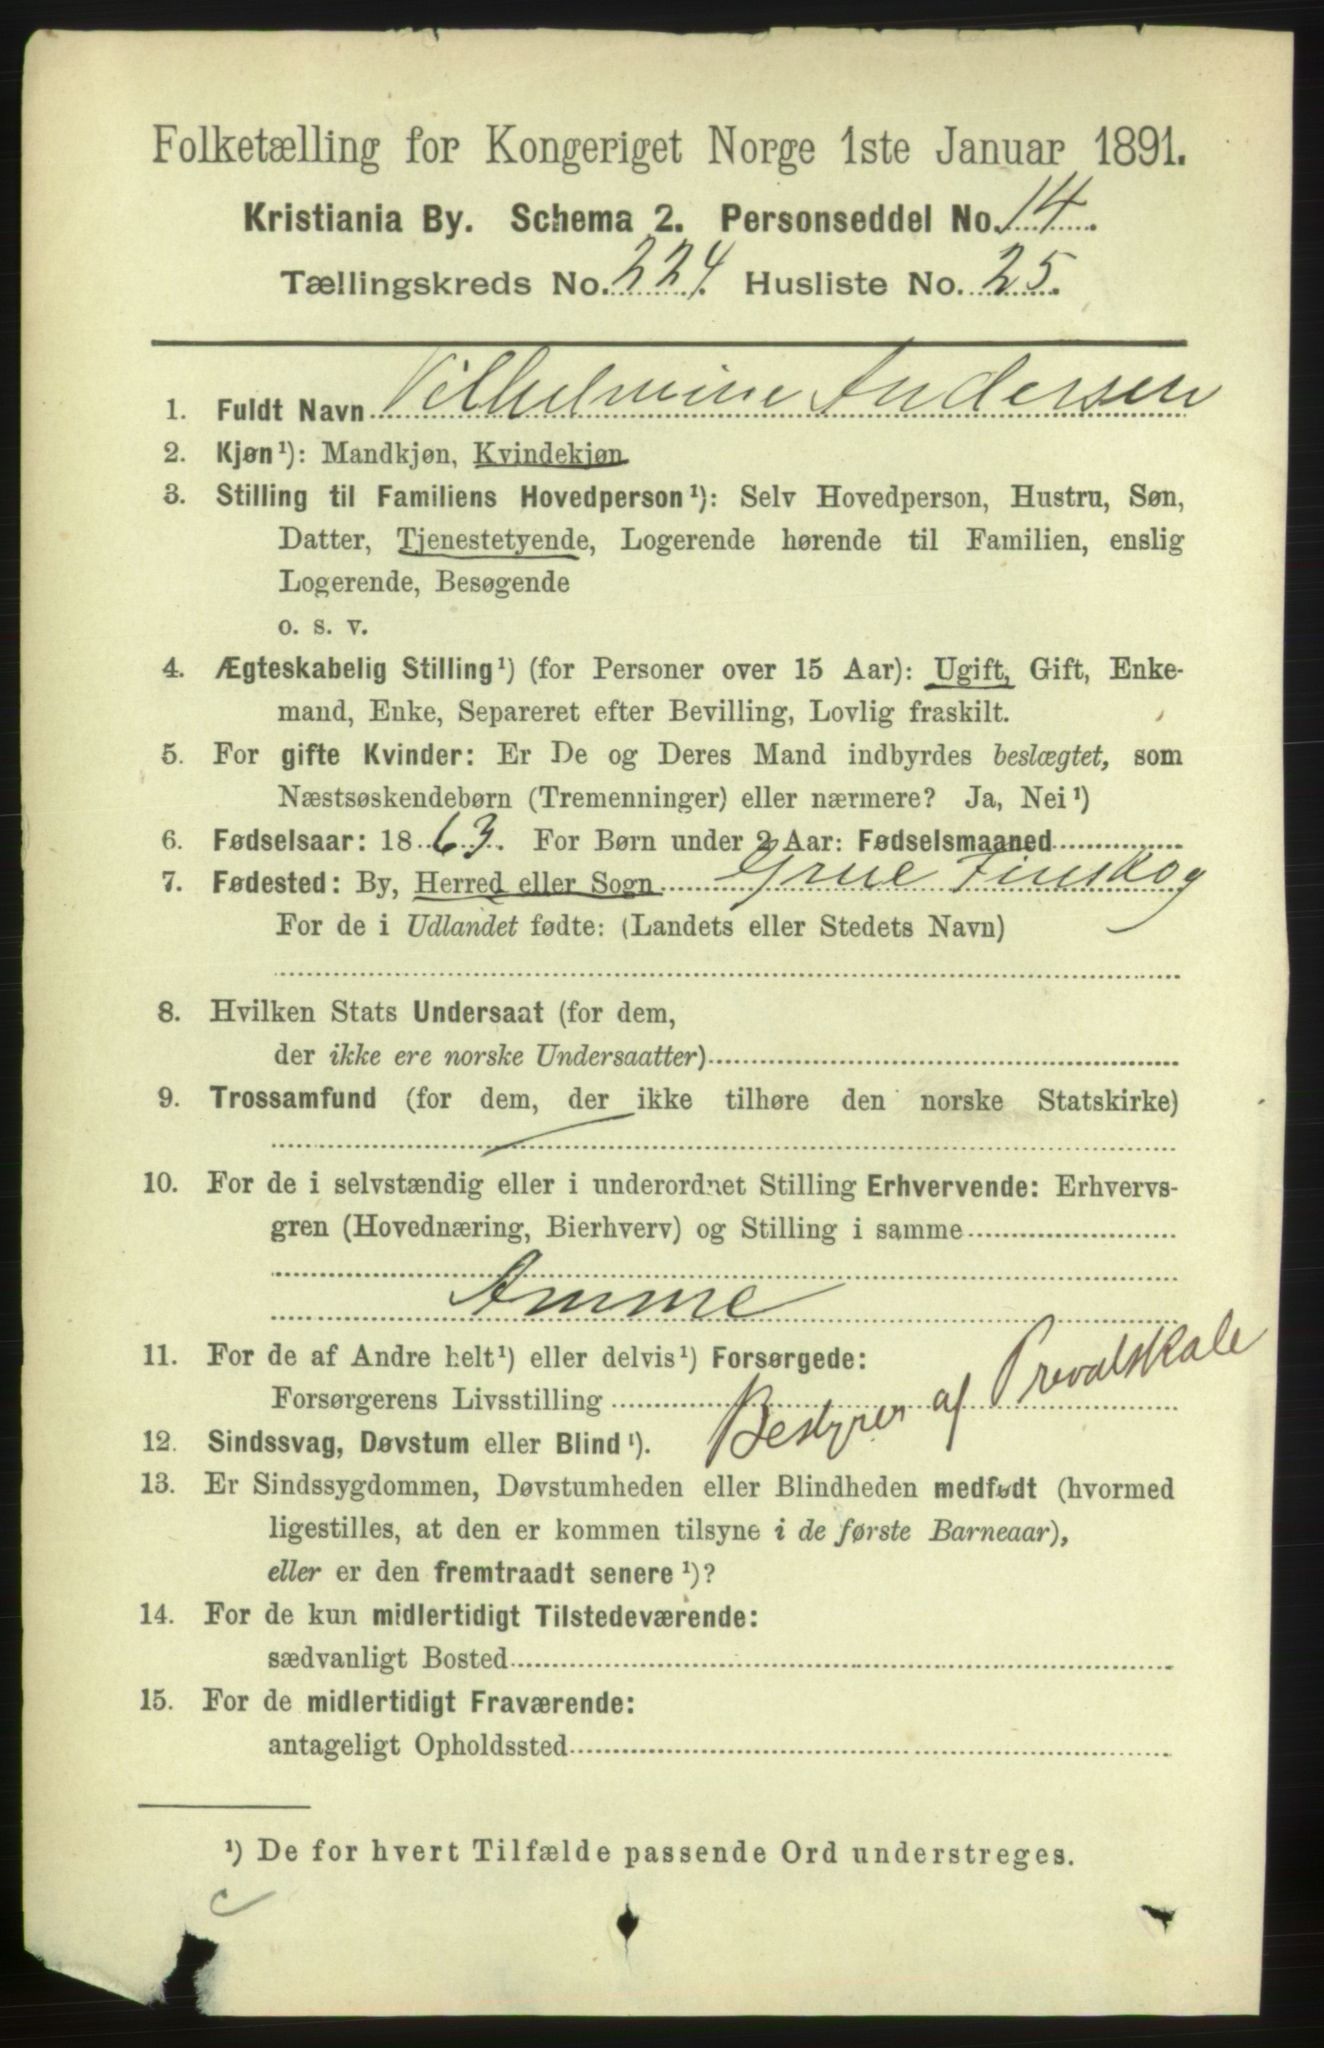 Folketælling for Kongeriget Norge 1ste Januar 1891.
Kristiania By. Schema 2. Personseddel No. 14.
Tællingskreds No. 224. Husliste No. 25.
1. Fuldt Navn Vilhelmine Andersen
2. Kjøn¹): Mandkjøn, Kvindekjøn
3. Stilling til Familiens Hovedperson¹): Selv Hovedperson, Hustru, Søn,
Datter, Tjenestetyende, Logerende hørende til Familien, enslig
Logerende, Besøgende
o. s. v.
4. Ægteskabelig Stilling¹) (for Personer over 15 Aar): Ugift, Gift, Enke-
mand, Enke, Separeret efter Bevilling, Lovlig fraskilt.
5. For gifte Kvinder: Er De og Deres Mand indbyrdes beslægtet, som
Næstsøskendebørn (Tremenninger) eller nærmere? Ja, Nei¹)
6. Fødselsaar: 1863. For Børn under 2 Aar: Fødselsmaaned
7. Fødested: By, Herred eller Sogn Grue Finskog
For de i Udlandet fødte: (Landets eller Stedets Navn)
8. Hvilken Stats Undersaat (for dem,
der ikke ere norske Undersaatter)
9. Trossamfund (for dem, der ikke tilhøre den norske Statskirke)
10. For de i selvstændig eller i underordnet Stilling Erhvervende: Erhvervs-
gren (Hovednæring, Bierhverv) og Stilling i samme
Amme
11. For de af Andre helt¹) eller delvis¹) Forsørgede:
Forsørgerens Livsstilling Bestyrer af
12. Sindssvag, Døvstum eller Blind¹).
13. Er Sindssygdommen, Døvstumheden eller Blindheden medfødt (hvormed
ligestilles, at den er kommen tilsyne i de første Barneaar),
eller er den fremtraadt senere¹)?
14. For de kun midlertidigt Tilstedeværende:
sædvanligt Bosted
15. For de midlertidigt Fraværende:
antageligt Opholdssted
¹) De for hvert Tilfælde passende Ord understreges.